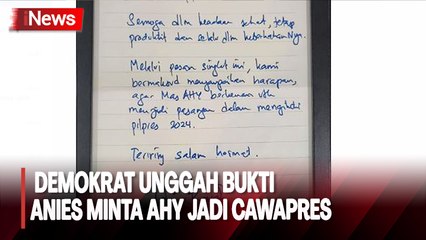 iNews
Semoga dlm keadaan sehat, tetap
produktif dan selalu dlm keberkahanNya.
Melalui pesan singkat ini, kami
bermaksud menyampaikan harapan,
agar Mas AHY berkenan utk
menjadi pasangan dalam mengikuti
pilpres 2024.
Teriring salam hormat.
DEMOKRAT UNGGAH BUKTI
ANIES MINTA AHY JADI CAWAPRES